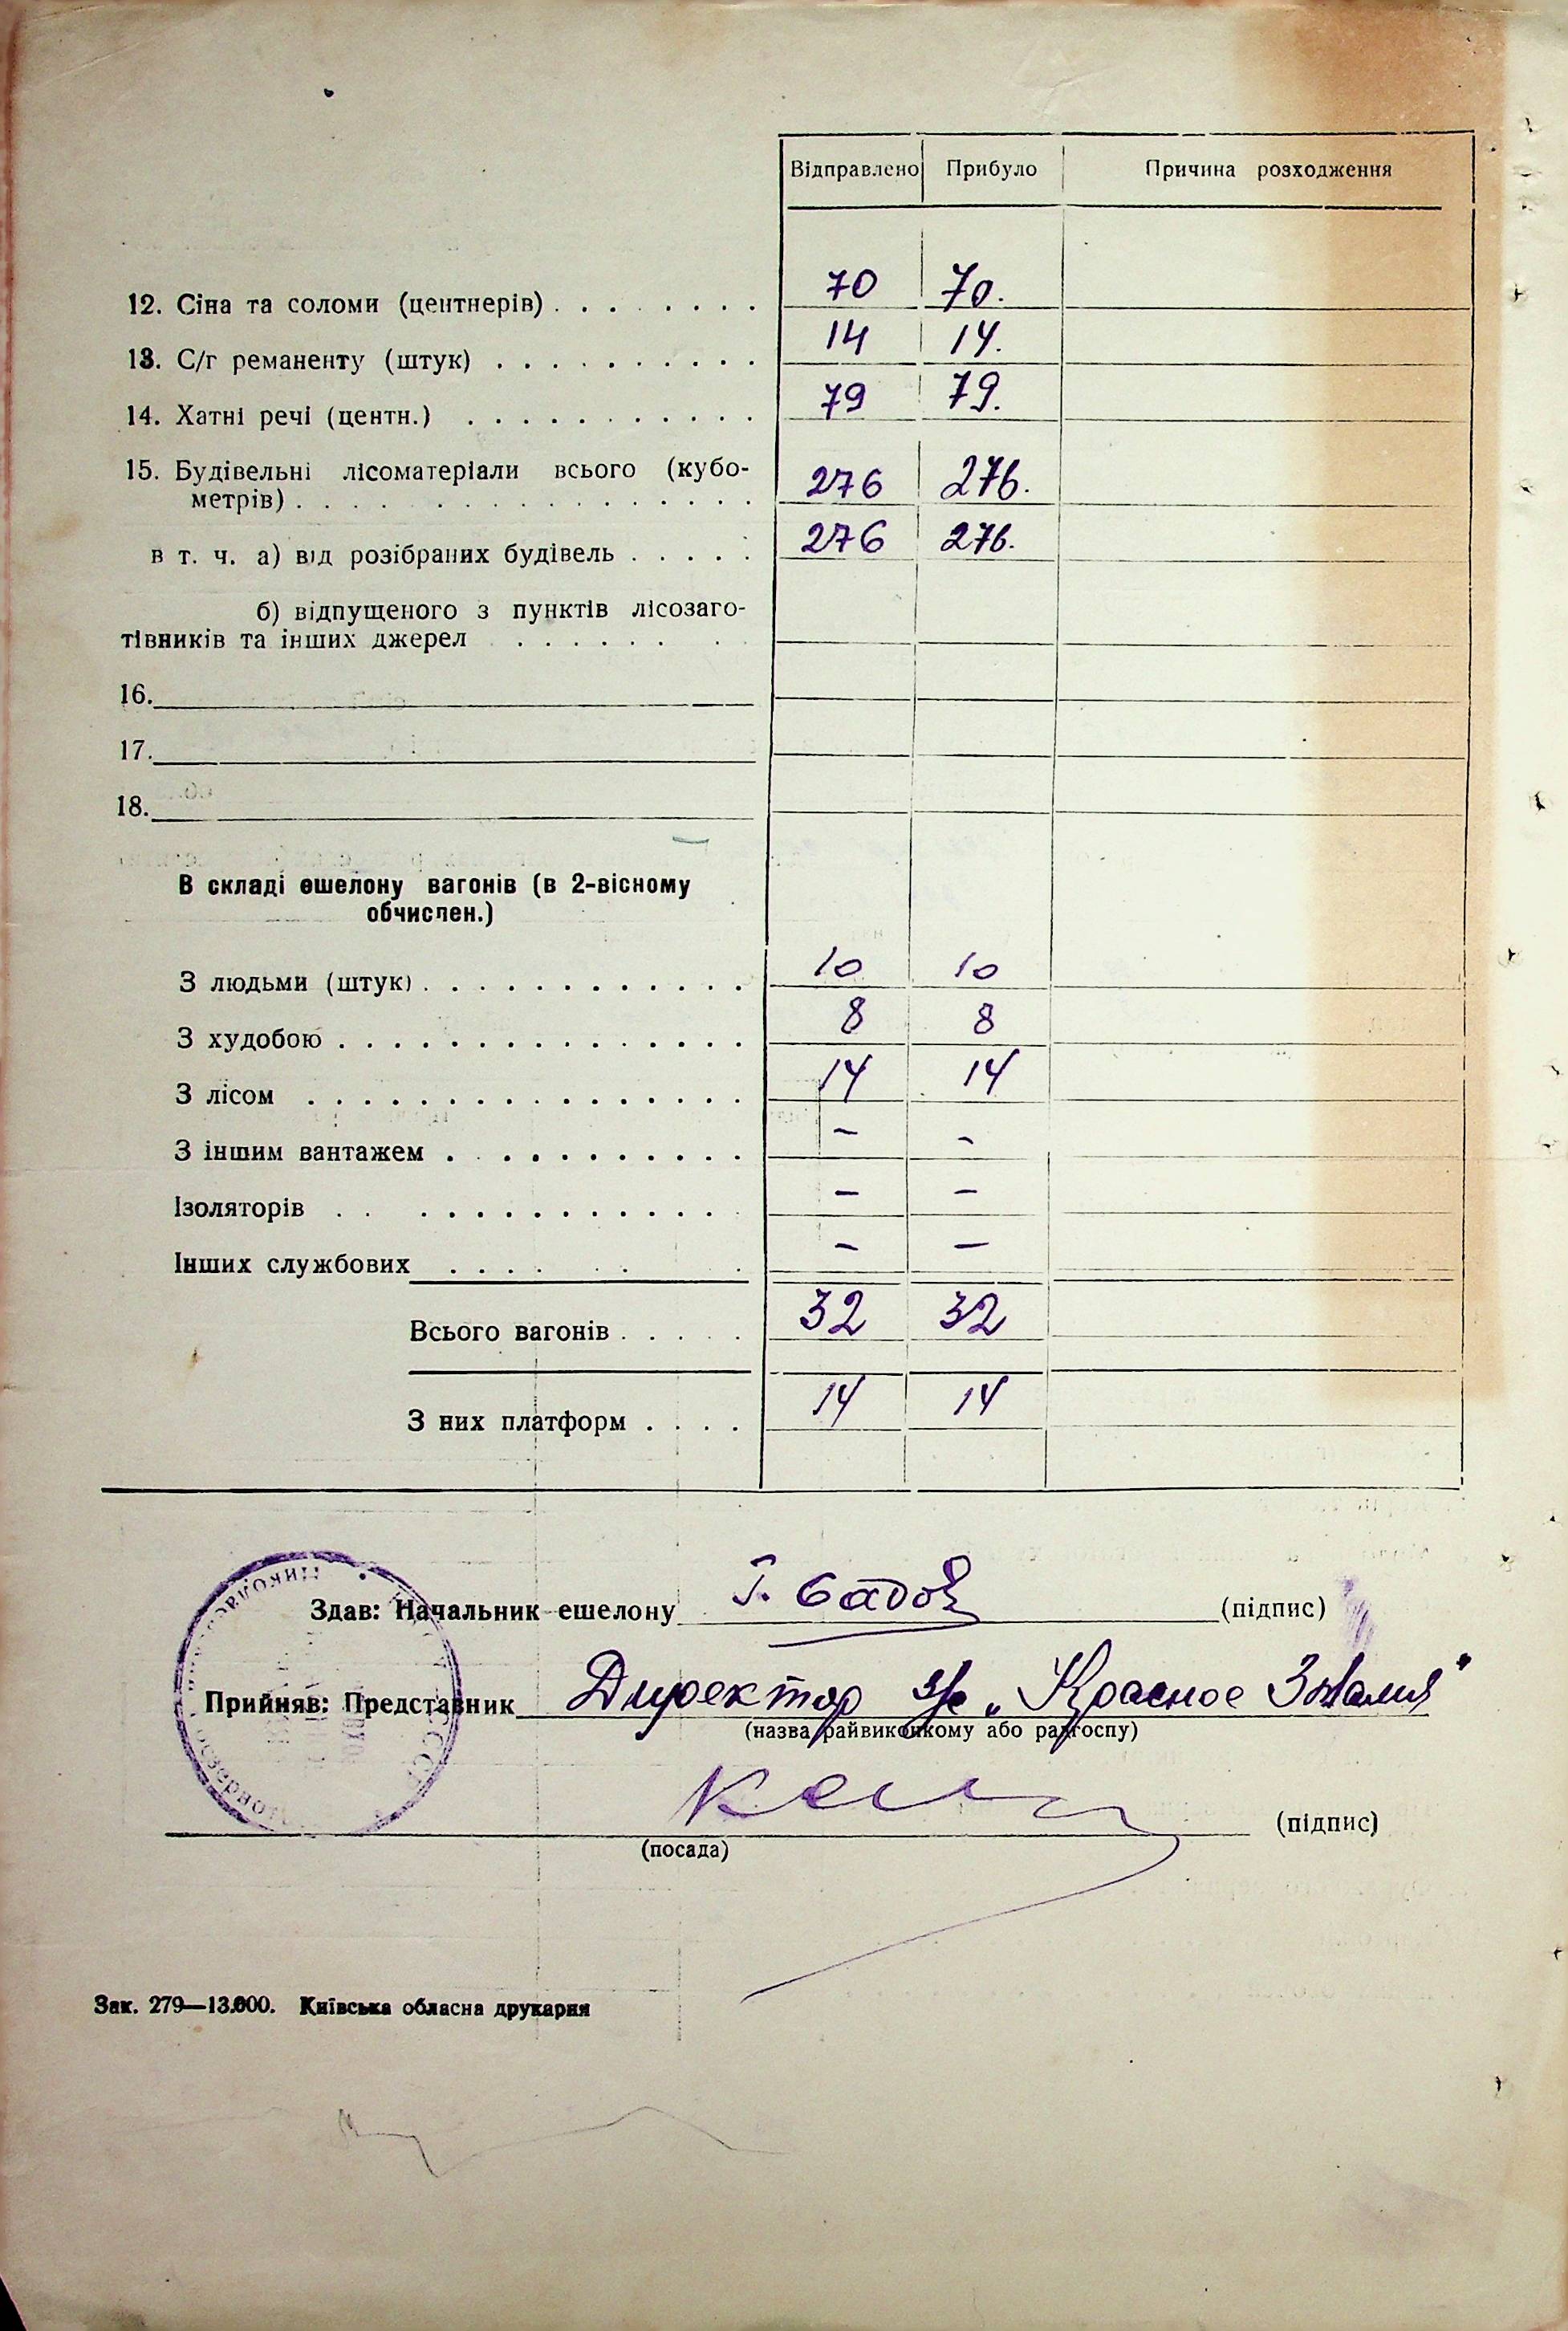 Відправлено Прибуло Причина розходження
12. Сіна та соломи (центнерів) . . . . . . . . 70 70.
13. С/г реманенту (штук) . . . . . . . . . . 14 14.
14. Хатні речі (центн.) . . . . . . . . . . . 79 79.
15. Будівельні лісоматеріали всього (кубо-
метрів) . . . . . . . . . . . . . . . . 276 276.
в т. ч. а) від розібраних будівель . . . . . 276 276.
б) відпущеного з пунктів лісозаго-
тівників та інших джерел . . . . . . . .
16.
17.
18.
В складі ешелону вагонів (в 2-вісному
обчислен.)
З людьми (штук) . . . . . . . . . . . . 10 10
З худобою . . . . . . . . . . . . . . . 8 8
З лісом . . . . . . . . . . . . . . . . 14 14
З іншим вантажем . . . . . . . . . . . – –
Ізоляторів . . . . . . . . . . . . . . – –
Інших службових . . . . . . . – –
Всього вагонів . . . . . 32 32
З них платформ . . . . 14 14
Здав: Начальник ешелону (підпис)
Прийняв: Представник Директор "Красное Знамя"
(назва райвиконкому або радгоспу)
(підпис)
(посада)
Зак. 279—13.000. Київська обласна друкарня